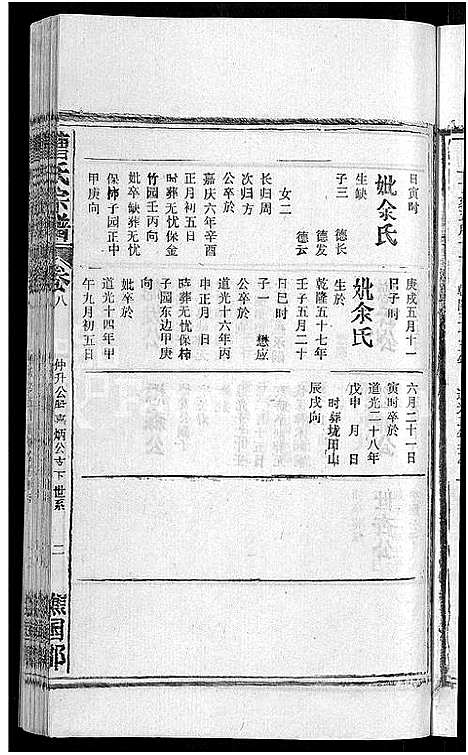 日寅时
妣余氏
生缺
子三 德长
德发
德云
女二
长归周
次归方
公卒於
嘉庆六年辛酉
正月初五日
时葬无忧保金
竹园壬丙向
妣卒缺葬无忧
保柿子园正中
甲庚向
庚戌五月十一
日子时
妣余氏
生於
乾隆五十七年
壬子五月二十
日巳时
子一 懋应
公卒於
道光十六年丙
申正月 日
时葬无忧保柿
子园东边甲庚
向
妣卒於
道光十四年甲
午九月初五日
六月二十一日
寅时卒於
道光二十八年
戊申 月 日
时葬垅田山
辰戌向
曹氏宗谱
卷八
仲升公 嘉炳公支下世系
二
谯国郡